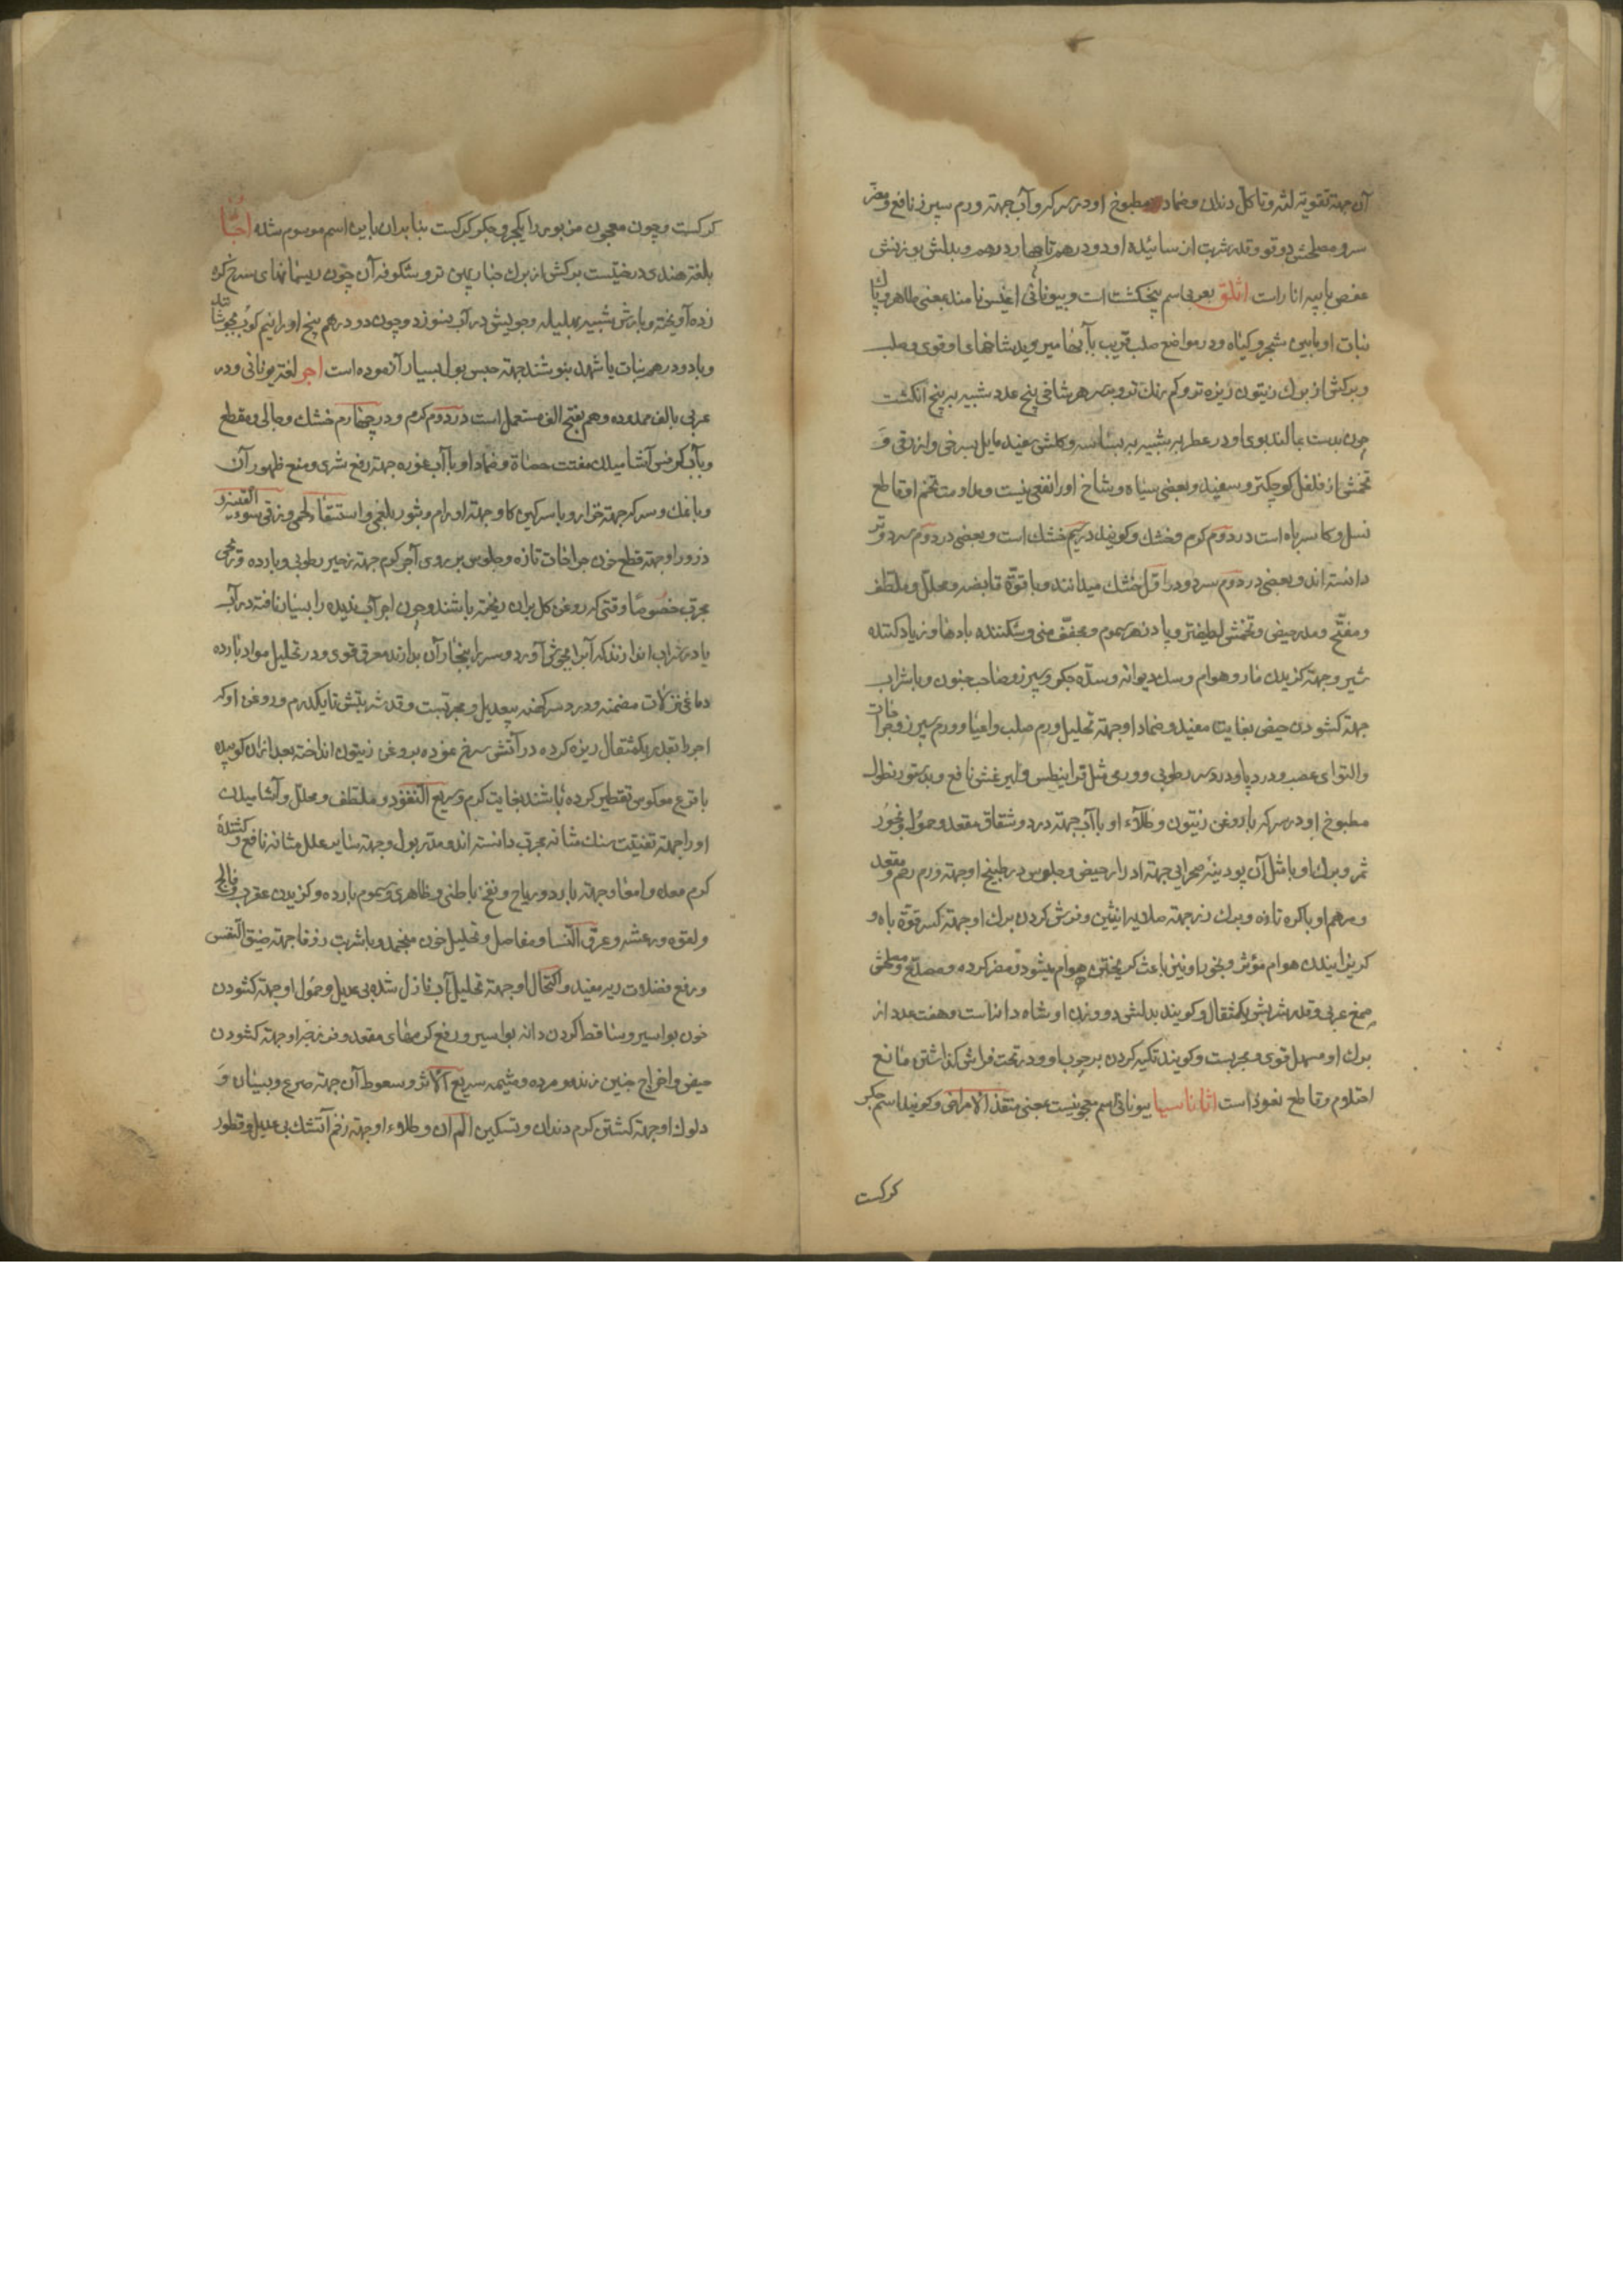 آن جهته تقویته لثه و تاکل دندان و ضماد مطبوخ او در سرکه و آب جهته ورم سپرز نافع و مضر
سر و مصلحش دوقو و قدر شربت از سائیده او دو درهم تا چهار درهم و بدلش بوزنش
عفص با پیه انار است اثلق بعربی اسم پنجنکشت است و بیونانی اغیس نامند بمعنی طاهر و پاک
نبات او مابین شجر و کیاه و در مواضع صلب قریب بآبها میروید شاخهای او قوی و صلب
و برکش از برک زیتون ریزه تر و کم رنک تر و بر سر هر شاخی پنج عدد شبیه به پنج انکشت
چون بدست بمالند بوی او در عطریه شبیه به بسباسه و کلش سفید مایل بسرخی و ازرقی و
تخمش از فلفل کوچکتر و سفید و بعضی سیاه و شاخ او را نفعی نیست و مداومت تخم او قاطع
نسل و کاسر باه است در دوم کرم و خشک و کویند در سیم خشک است و بعضی در دوم سرد و تر
دانسته اند و بعضی در دوم سرد و در اول خشک میدانند و با قوة قابضه و محلل و ملطف
و مفتح و مدر حیض و تخمش لطیفتر و پادزهر سموم و مجفف منی و شکننده بادها و زیاد کننده
شیر و جهته کزیدن مار و هوام و سک دیوانه و سده جکر و سپرز و صاحب جنون و با شراب
جهته کشودن حیض بغایت مفید و ضماد او جهته تحلیل ورم صلب و اعیا و ورم سپرز و جراحات
و التوای عصب و درد پا و درد سر رطوبی و ورمی مثل قرانیطس و لیثرغس نافع و بدستور نطول
مطبوخ او در سرکه با روغن زیتون و طلاء او با آب جهته درد و شقاق مقعد و حمول و بخور
ثمر و برک او با مثل آن پودینه صحرائی جهته ادرار حیض و جلوس در طبیخ او جهته ورم رحم و مقعد
و مرهم او با کره تازه و برک رز جهته صلابه انثیین و فرش کردن برک او جهته کسر قوة باه و
کریزانیدن هوام مؤثر و بخور او نیز باعث کریختن هوام میشود و مضر کرده و مصدع و مصلحش
صمغ عربی و قدر شربتش یکمثقال و کویند بدلش دو وزن او شاه دانه است و هفت عدد از
برک او مسهل قوی و مجربست و کویند تکیه کردن بر چوب او و در تحت فراش کذاشتن مانع
احتلام و قاطع نعوذ است اثاناسیا بیونانی اسم معجونیست بمعنی منقذ الامراض و کویند اسم جکر
کرکست
کرکست و چون معجون مزبور را یکجزو جکر کرکست بنابران باین اسم موسوم شده اجتا
بلغة هندی درختیست برکش از برک خیار پهن تر و شکوفه آن چون ریسمانهای سرخ کره
زده آویخته و بارش شبیه بهلیله و چوبش در آب نسوزد و چون دو درهم پنج او را نیم کوب بجوشانند
و با دو درهم نبات یا شهد بنوشند جهته حبس بول بسیار آزموده است اجر لغة یونانی و در
عربی بالف ممدوده و هم بفتح الف مستعمل است در دوم کرم و در چهارم خشک و جالی و مقطع
و بآب کرفس آشامیدن مفتت حصاة و ضماد او با آب غوره جهته رفع شری و منع ظهور آن
و با نمک و سرکه جهته خراز و با سرکین کاو جهته اورام و بثور بلغمی و استسقا لحمی و زقی و سوء القنیه
و ذرور او جهته قطع خون جراحات تازه و جلوس بر روی آجر کرم جهته زحیر رطوبی و بارده و ترخی
مجرب خصوصا وقتی که روغن کل بران ریخته باشند و چون اجر آب ندیده را بسیار تافته در آب
یا در شراب اندازند که آنرا بجوش آورد و سر را ببخار آن بدارند معرق قوی و در تحلیل مواد بارده
دماغی نزلات مضمنه و درد سر کهنه بیعدیل و مجربست و قدر شربتش تا یکدرم و روغن او که
اجر را بقدر یکمثقال ریزه کرده در آتش سرخ نموده بروغن زیتون انداخته بعد ازان کوبیده
با قرع معکوس تقطیر کرده باشند بغایت کرم و سریع النفوذ و ملطف و محلل و آشامیدن
او را جهته تفتیت سنک مثانه مجرب دانسته اند و مدر بول و جهته سایر علل مثانه نافع و کشنده
کرم معده و امعا و جهته بارد و ریاح و نفخ باطنی و ظاهری و سموم بارده و کزیدن عقرب و فالج
و لقوه و رعشه و عرق النسا و مفاصل و تحلیل خون منجمد و با شربت زوفا جهته ضیق النفس
و رفع فضلات ریه مفید و اکتحال او جهته تحلیل آب نازل شده بی عدیل و حمول او جهته کشودن
خون بواسیر و ساقط کردن دانه بواسیر و رفع کرمهای مقعد و فرزجه او جهته کشودن
حیض و اخراج جنین زنده و مرده و مشیمه سریع الاثر و سعوط آن جهته صرع و نسیان و
دلوک او جهته کشتن کرم دندان و تسکین الم آن و طلاء او جهته زخم آتشک بی عدیل و قطور